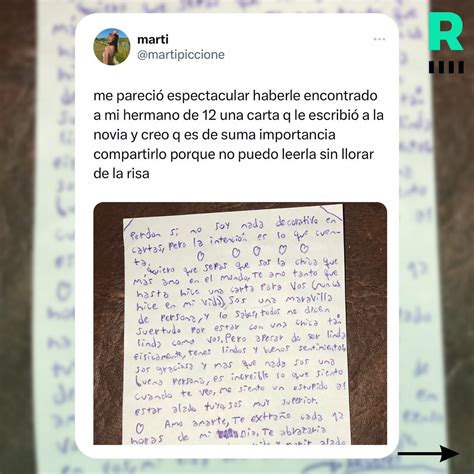 R
marti
@martipiccione
me pareció espectacular haberle encontrado
a mi hermano de 12 una carta q le escribió a la
novia y creo q es de suma importancia
compartirlo porque no puedo leerla sin llorar
de la risa
Perdon si no soy nada decorativo en
cartas, pero la intención es lo que cuen-
ta.
Quiero que sepas que sos la chica que
mas amo en el mundo, Te amo tanto que
hasta hice una carta para vos (nunca
hice en mi vida), sos una maravilla
de persona, y lo sabes, todos me dicen
suertudo por estar con una chica tan
linda como vos, pero apesar de ser linda
fisicamente, tenes lindos y buenos sentimientos,
sos graciosa y mas que nada sos una
buena persona, es increible lo que siento
cuando te veo, me siento un estupido al
estar alado tuyo, sos muy superior.
Amo amarte, Te extraño cada 12
horas de mi Dia, Te abrazaria